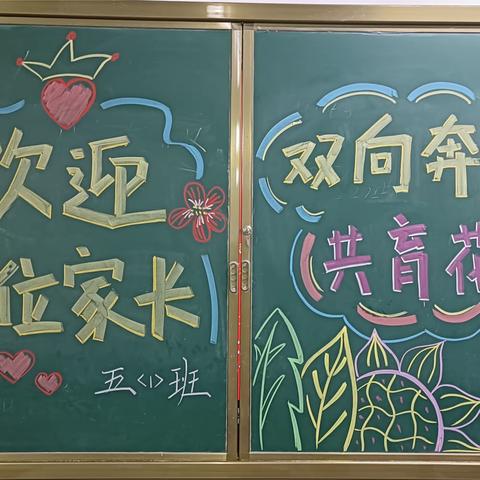 欢迎
位家长
五<1>班
双向奔
共育花